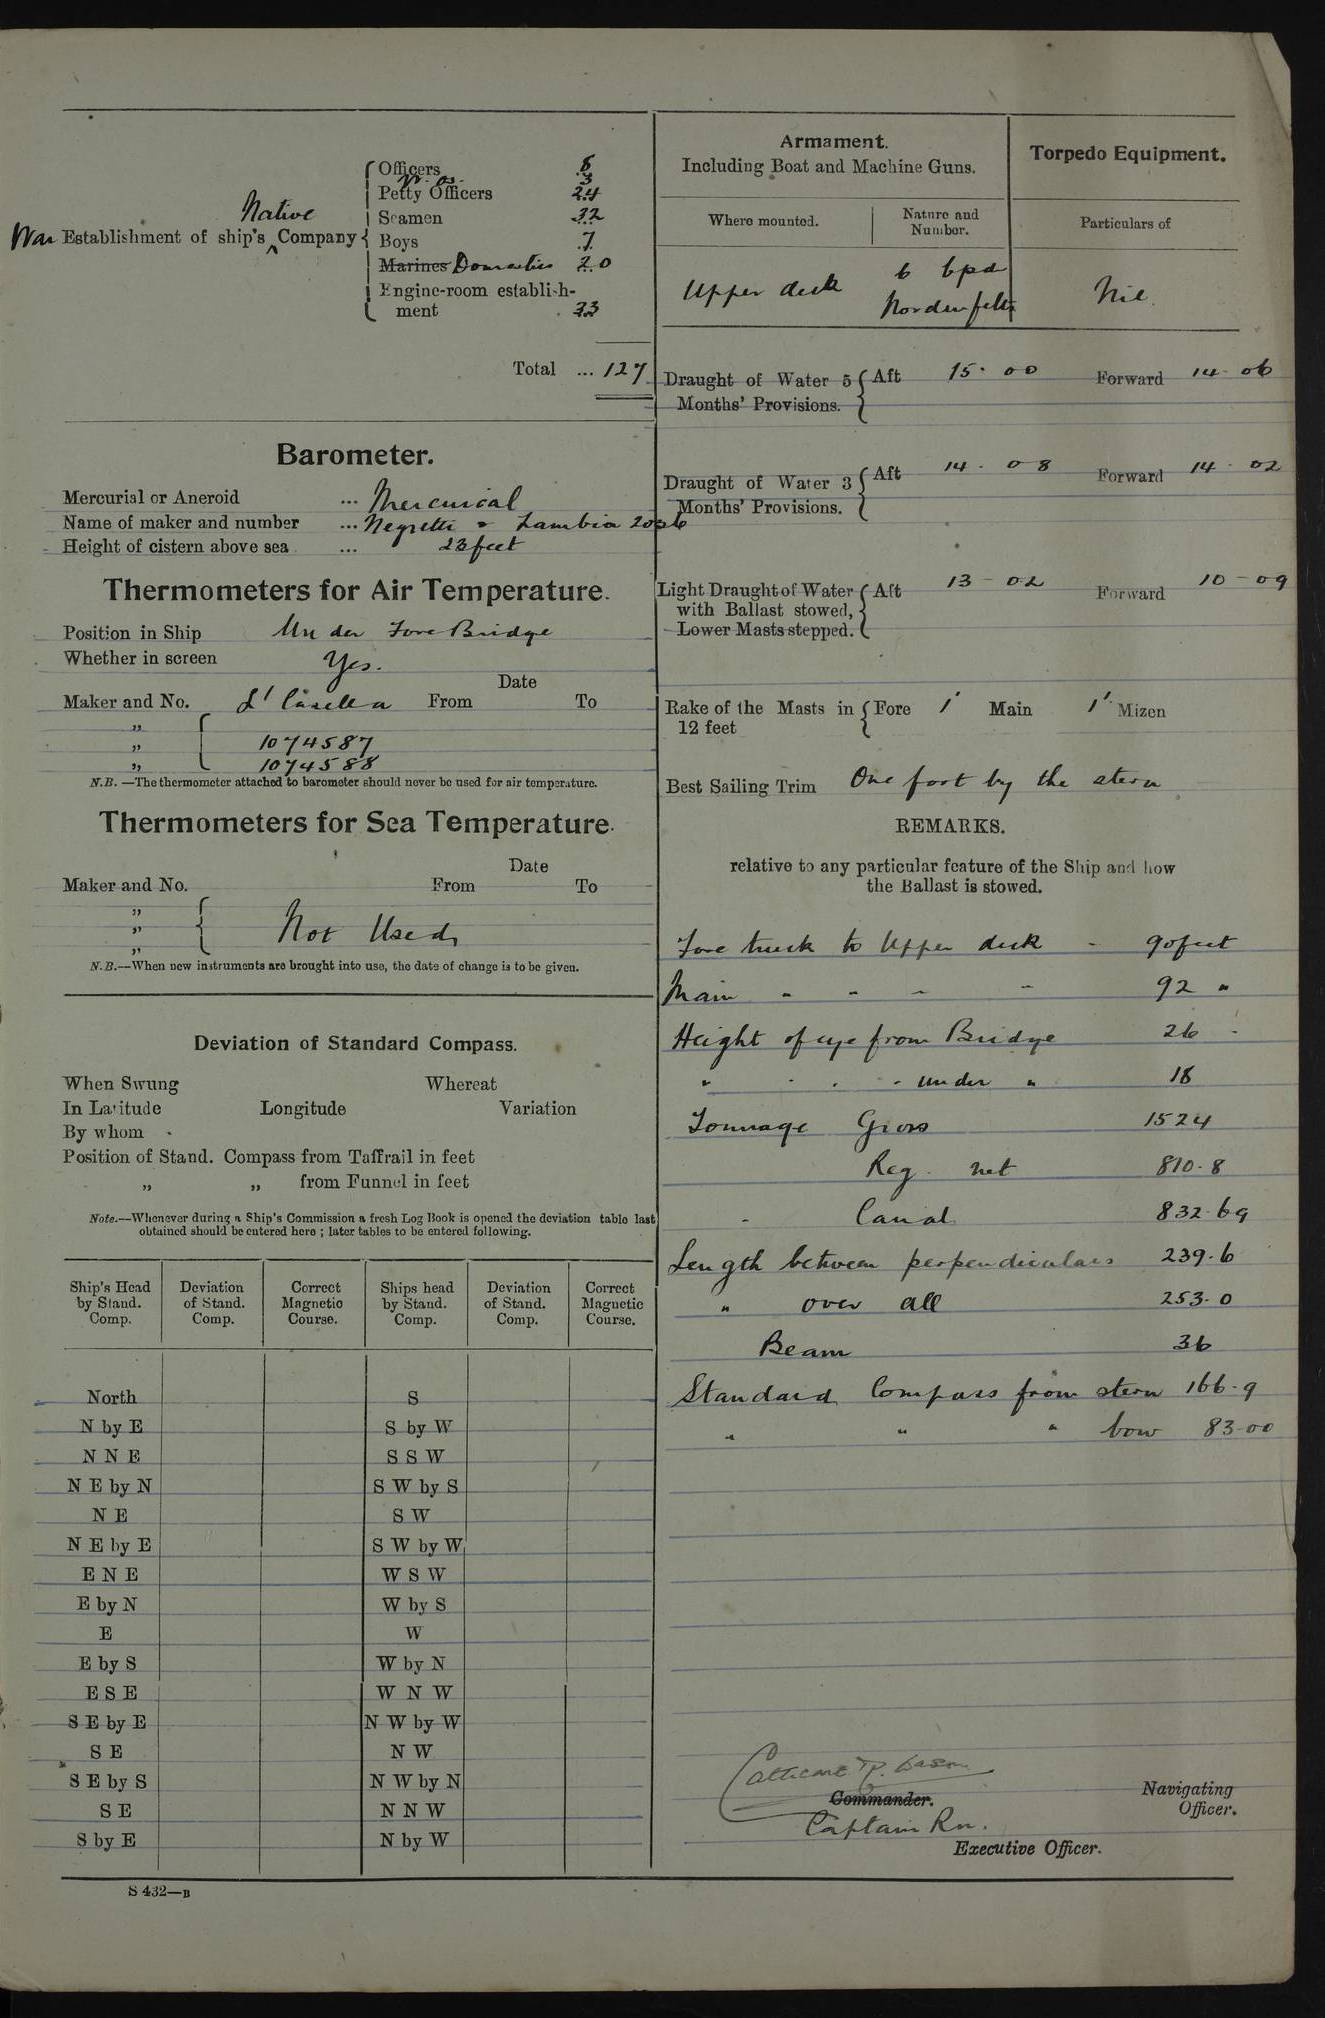 Officers 8
W. Os. 3
Petty Officers 24
Native
Seamen 32
War Establishment of ship's ^ Company
Boys 7
Marines Domestics 20
Engine-room establish-
ment 33
Total ... 127
Barometer.
Mercurial or Aneroid ... Mercurical
Name of maker and number ... Negretti & Zambia 2056
Height of cistern above sea ... 23 feet
Thermometers for Air Temperature.
Position in Ship Under Fore Bridge
Whether in screen Yes.
Date
Maker and No. L' Casella From To
"
" 1074587
" 1074588
N.B. —The thermometer attached to barometer should never be used for air temperature.
Thermometers for Sea Temperature.
Date
Maker and No. From To
"
" Not Used,
"
N.B.—When new instruments are brought into use, the date of change is to be given.
Deviation of Standard Compass.
When Swung Whereat
In Latitude Longitude Variation
By whom
Position of Stand. Compass from Taffrail in feet
" " from Funnel in feet
Note.—Whenever during a Ship's Commission a fresh Log Book is opened the deviation table last
obtained should be entered here ; later tables to be entered following.
Ship's Head Deviation Correct Ships head Deviation Correct
by Stand. of Stand. Magnetic by Stand. of Stand. Magnetic
Comp. Comp. Course. Comp. Comp. Course.
North S
N by E S by W
N N E S S W
N E by N S W by S
N E S W
N E by E S W by W
E N E W S W
E by N W by S
E W
E by S W by N
E S E W N W
S E by E N W by W
S E N W
S E by S N W by N
S E N N W
S by E N by W
S 432—B
Armament.
Including Boat and Machine Guns.
Torpedo Equipment.
Where mounted. Nature and
Number.
Particulars of
Upper deck 6 6pd
Nordenfelts
Nil.
Draught of Water 5 Aft 15. 00 Forward 14 06
Months' Provisions.
Draught of Water 3 Aft 14. 08 Forward 14 02
Months' Provisions.
Light Draught of Water Aft 13 - 02 Forward 10 - 09
with Ballast stowed,
Lower Masts stepped.
Rake of the Masts in Fore 1' Main 1' Mizen
12 feet
Best Sailing Trim One foot by the stern
REMARKS.
relative to any particular feature of the Ship and how
the Ballast is stowed.
Fore truck to Upper deck - 90 feet
Main " " " " 92 "
Height of eye from Bridge 26 "
" " " " under " 18
Tonnage Gross 1524
Reg. net 810.8
" Canal 832.69
Length between perpendiculars 239.6
" over all 253.0
Beam 36
Standard Compass from stern 166.9
" " " bow 83-00
Commander.
Captain Rn.
Navigating
Officer.
Executive Officer.